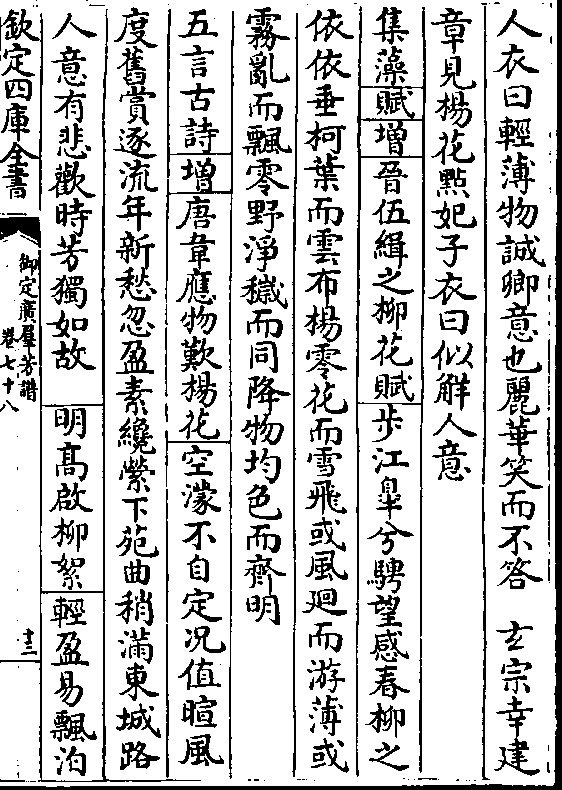 人衣曰輕薄物誠卿意也麗華笑而不答　玄宗幸建
章見楊花㸃妃子衣曰似解人意
集藻賦增晉伍緝之柳花賦歩江臯兮騁望感春柳之
依依垂柯葉而雲布楊零花而雪飛或風廻而游薄或
霧亂而飄零野淨穢而同降物均色而齊明
五言古詩增唐韋應物歎楊花空濛不自定况值暄風
度舊賞逐流年新愁忽盈素纔縈下苑曲稍滿東城路
人意有悲歡時芳獨如故　明髙啟柳絮輕盈易飄泊
欽定四庫全書
御定廣羣芳譜
卷七十八
十三